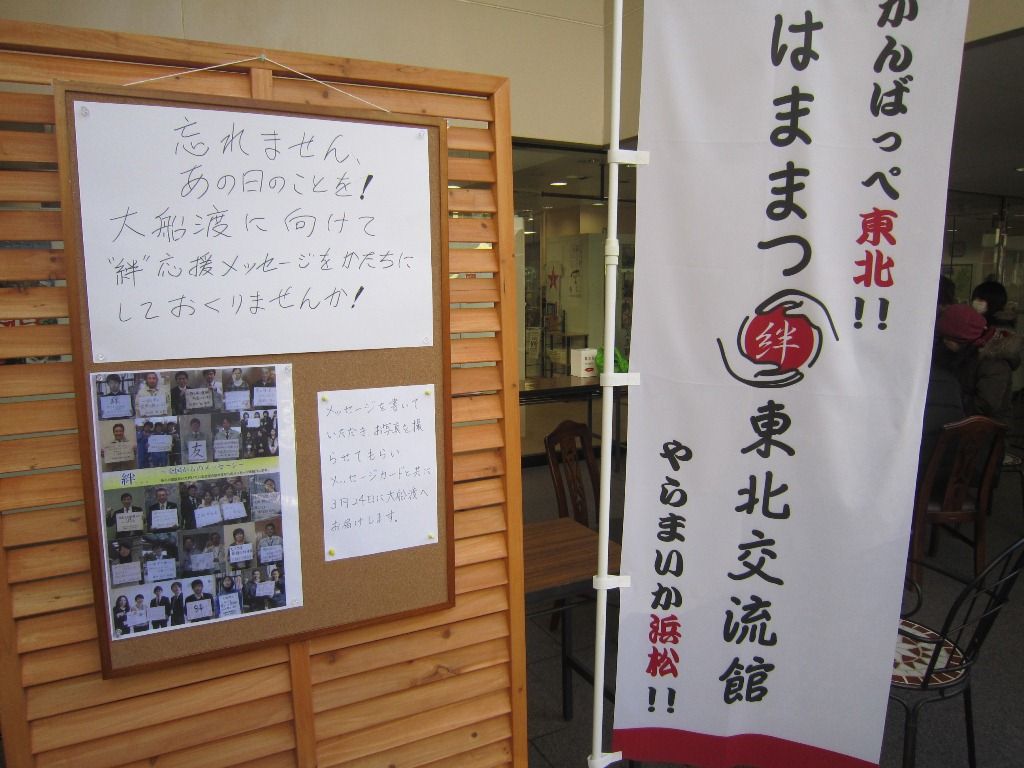 忘れません、
あの日のことを!
大船渡に向けて
"絆"応援メッセージをかたちに
しておくりませんか!
メッセージを書いて
いただき お写真を撮
らせてもらい
メッセージカードと共に
3月24日に大船渡へ
お届けします。
絆
友
かんばっぺ東北!!
はままつ絆東北交流館
やらまいか浜松!!